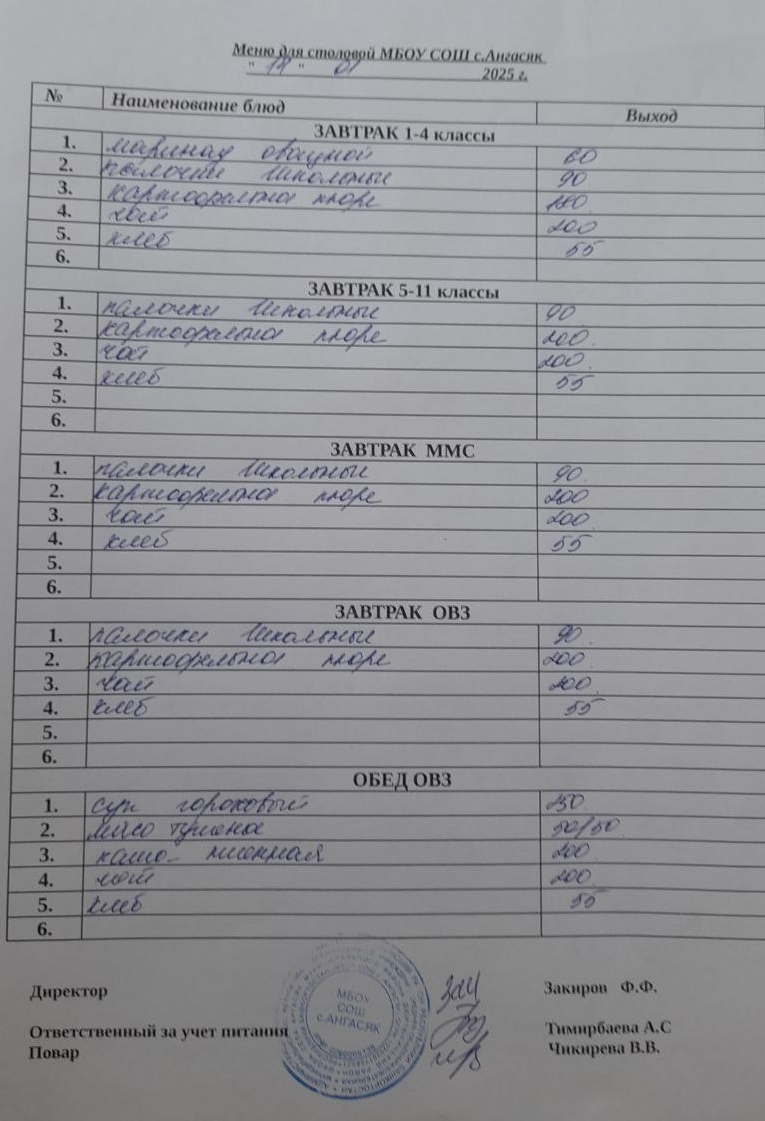 Меню для столовой МБОУ СОШ с.Ангасяк
" 14 " 01 2025 г.
№ Наименование блюд Выход
ЗАВТРАК 1-4 классы
1. маринад овощной 60
2. палочки школьные 90
3. картофельное пюре 180
4. чай 200
5. хлеб 55
6.
ЗАВТРАК 5-11 классы
1. палочки школьные 90
2. картофельное пюре 200.
3. чай 200.
4. хлеб 55
5.
6.
ЗАВТРАК ММС
1. палочки школьные 90.
2. картофельное пюре 200
3. чай 200.
4. хлеб 55
5.
6.
ЗАВТРАК ОВЗ
1. палочки школьные 90.
2. картофельное пюре 200.
3. чай 200.
4. хлеб 55
5.
6.
ОБЕД ОВЗ
1. суп гороховый 250.
2. мясо тушеное 50/50.
3. каша пшенная 200
4. чай 200.
5. хлеб 55
6.
Директор Закиров Ф.Ф.
Ответственный за учет питания Тимирбаева А.С
Повар Чикирева В.В.
МБОУ
СОШ
с.АНГАСЯК